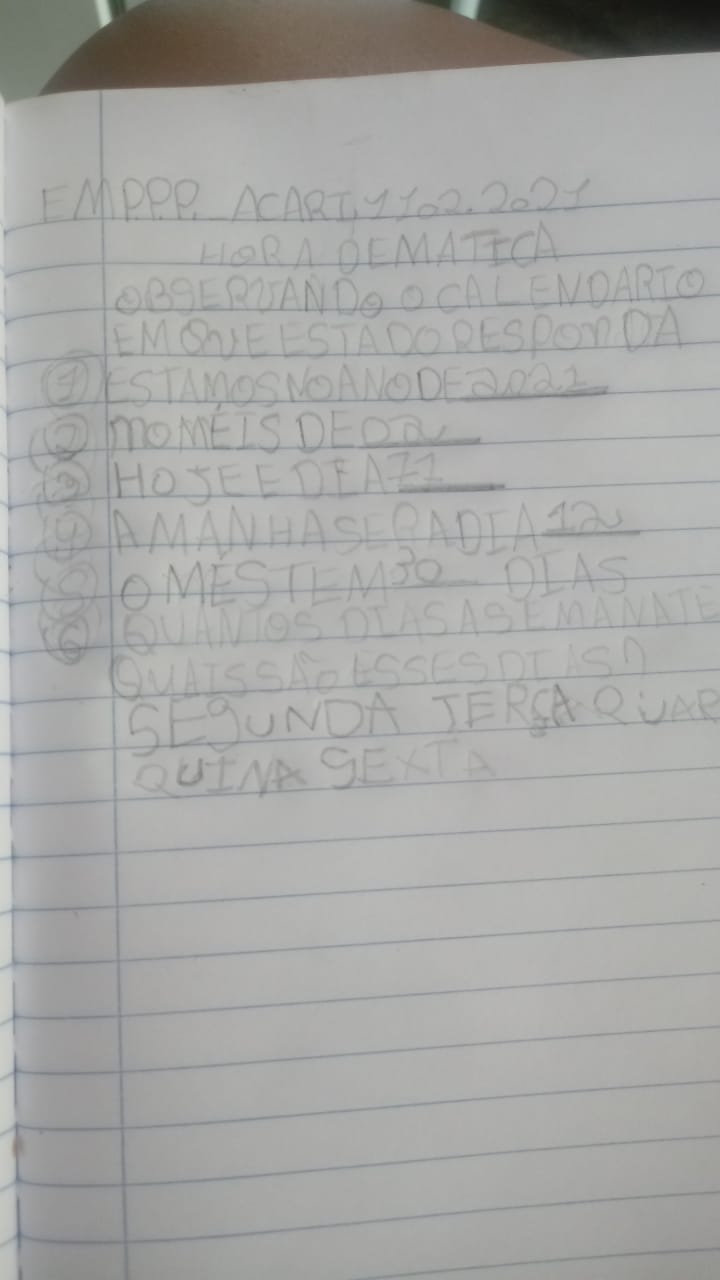 EMP.P.P. ACARI,11.02.2021
HORA DEMATICA
OBSERVANDO O CALENDARIO
EM QUE ESTADO RESPONDA
1 ESTAMOS NO ANO DE 2021
2 NO MÉIS DE 02
3 HOJE E DIA 11
4 AMANHA SERA DIA 12
5 O MÊS TEM 30 DIAS
6 QUANTOS DIAS A SEMANA TE
QUAIS SÃO ESSES DIAS?
SEGUNDA TERÇA QUAR
QUINA SEXTA